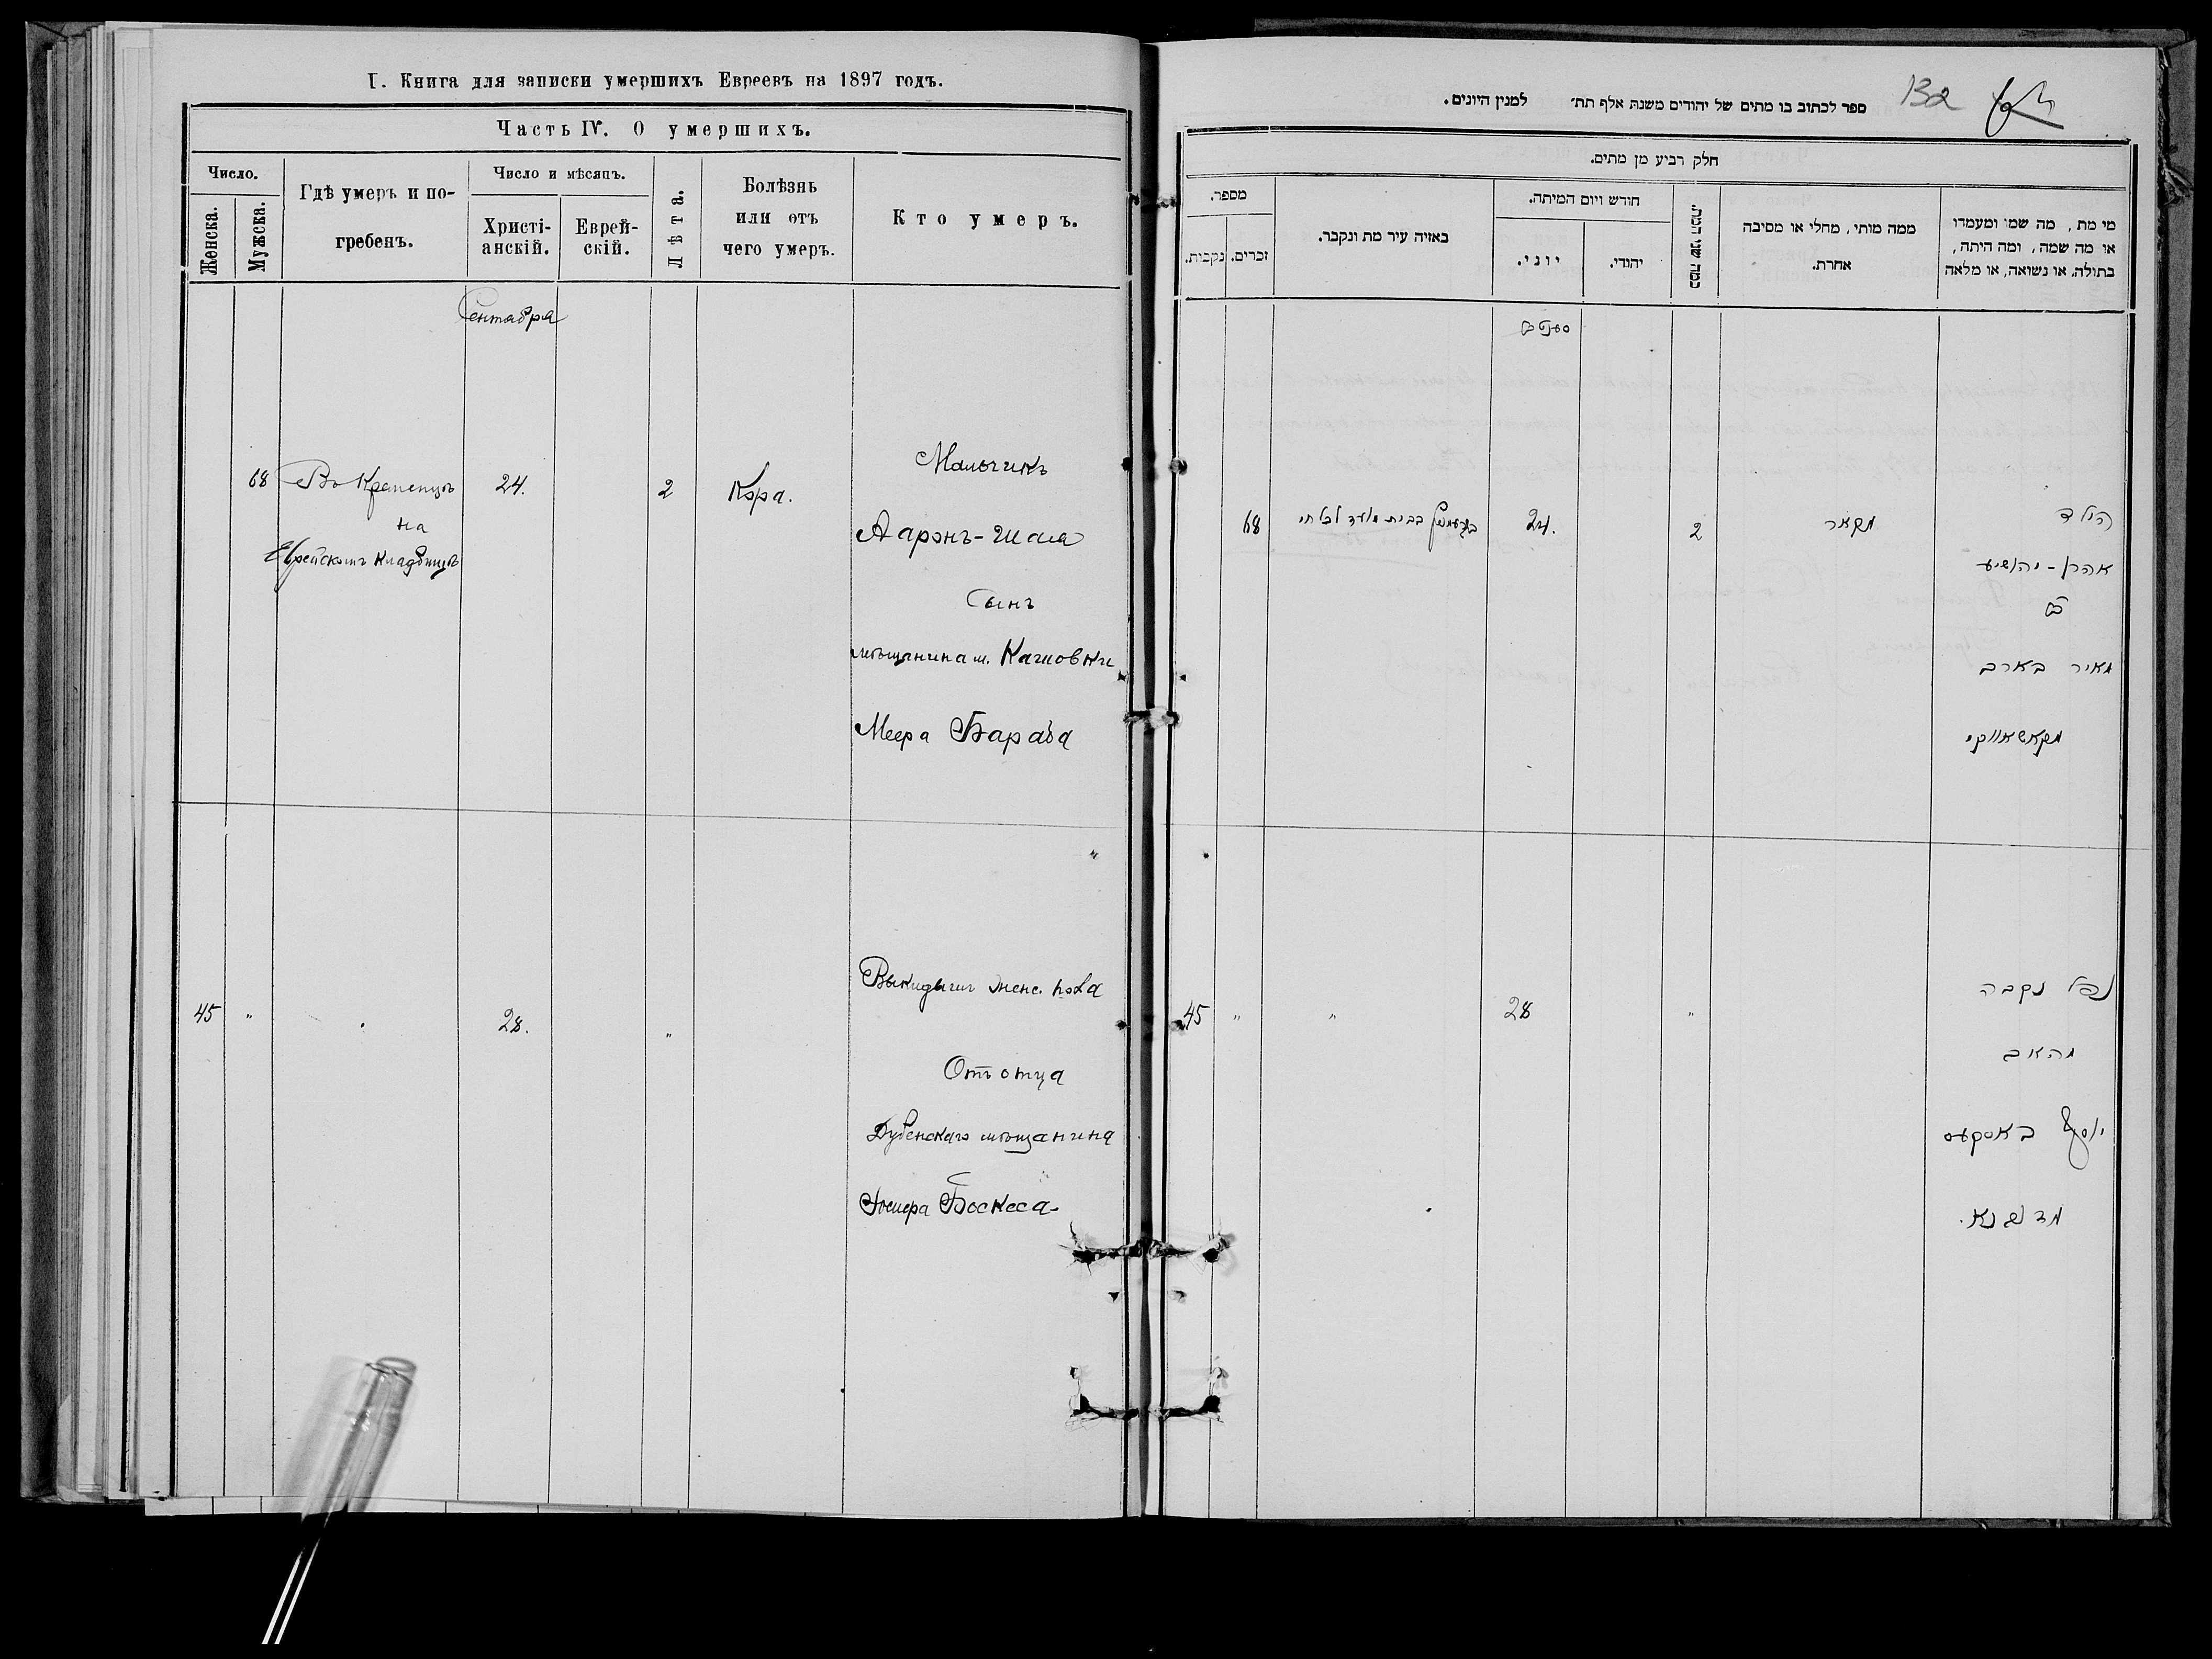 I. Книга для записки умершихъ Евреевъ на 1897 годъ.
Часть IV. О умершихъ.
Число.
Женска.
Мужска.
Гдѣ умеръ и по-
гребенъ.
Число и мѣсяцъ.
Христі-
анскій.
Еврей-
скій.
Лѣта.
Болѣзнь
или отъ
чего умеръ.
Кто умеръ.
Сентабра
68
Въ Кременцѣ
на
Еврейскомъ кладбищѣ
24.
2
Кора.
Мальчикъ
Ааронъ-
Сынъ
мѣщанина м.
Меера Бараба
45 "
28.
"
Выкидышъ женс. пола
Отъ отца
Дубенскаго мѣщанина
Боскеса
132
ספר לכתוב בו מתים של יהודים משנת אלף תת׳ למנין היונים.
חלק רביע מן מתים.
מספר.
נקבות.
זכרים.
באיזה עיר מת ונקבר.
חודש ויום המיתה.
יוני.
יהודי.
כמה שני המת.
ממה מותי, מחלי או מסיבה
אחרת.
מי מת, מה שמו ומעמדו
או מה שמה, ומה היתה,
בתולה, או נשואה, או מלאה
סעפטב
68
בבית מועד לכל חי
24.
2
מקאר
הילד
אהרן - יהושיע
ב
מאיר בארב
מקאשאווקי
45 "
"
28
"
נפל נקבה
מהאב
יוסף באסקעס
מדובנא.